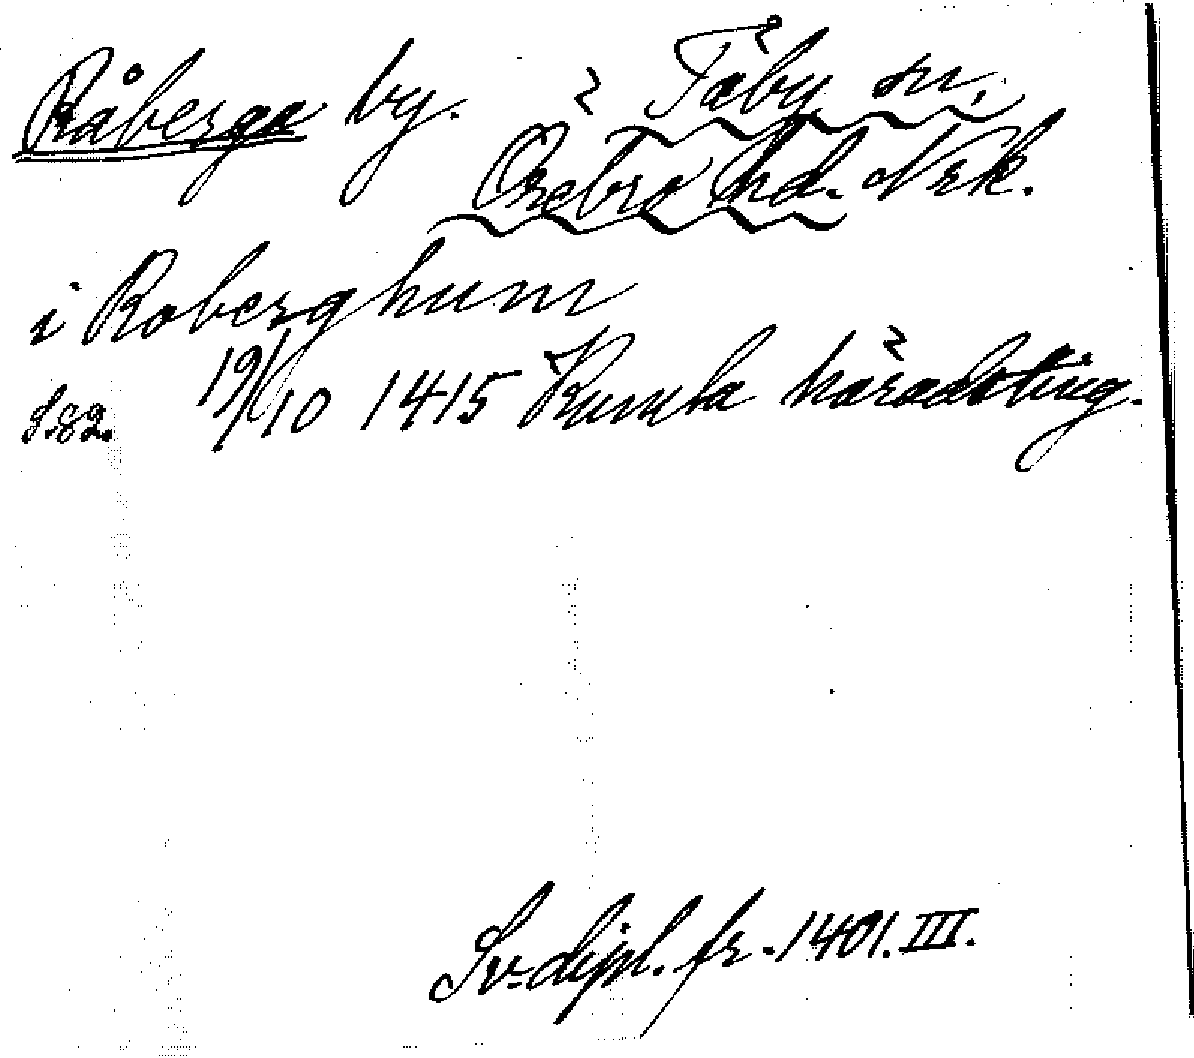 Råberga by. Täby sn,
Örebro hd. Nrk.
i Roberghum
S.82. 19/10 1415 Kumla häradsting.
Sv. dipl. fr. 1401. III.